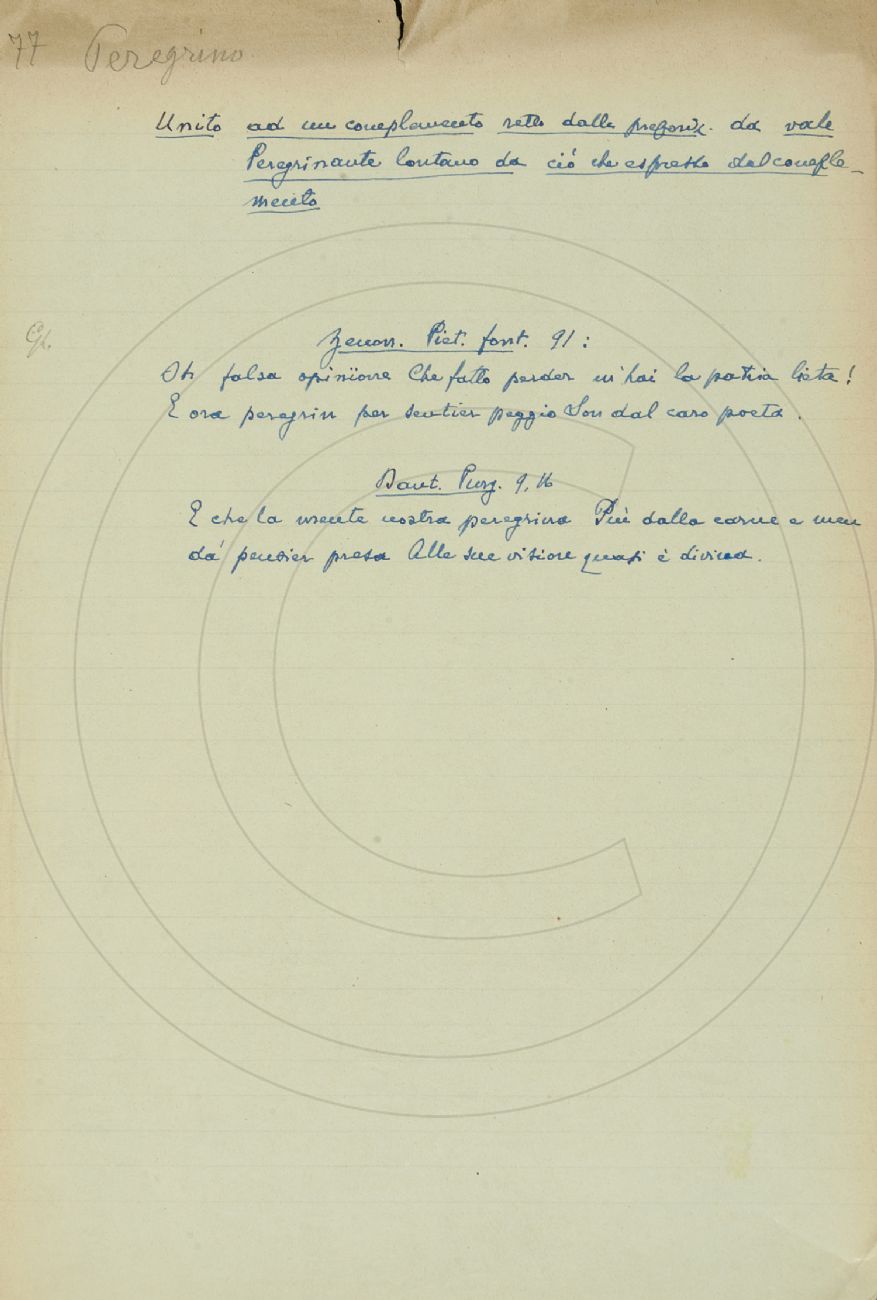 77 Peregrino
Unito ad un complemento retto dalla preposiz. da vale
Peregrinante lontano da ciò che espresso dal comple-
mento
Zenon. Piet. font. 91:
Oh falsa opinïone Che fatto perder m'hai la patria lieta!
E ora peregrin per sentier peggio Son dal caro poeta.
Dant. Purg. 9, 16
E che la mente nostra peregrina Più dalla carne e men
da' pensier presa Alle sue vision quasi è divina.